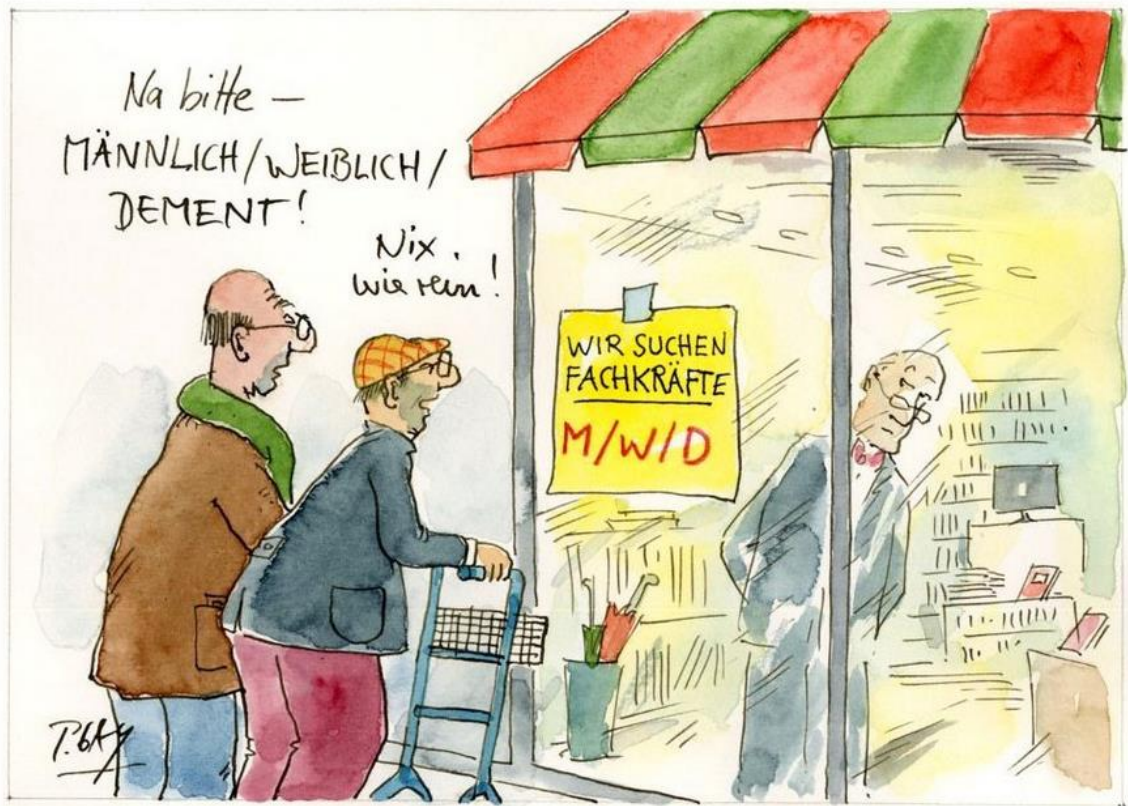 Na bitte –
MÄNNLICH/WEIBLICH/
DEMENT!
Nix.
wie rein!
WIR SUCHEN
FACHKRÄFTE
M/W/D